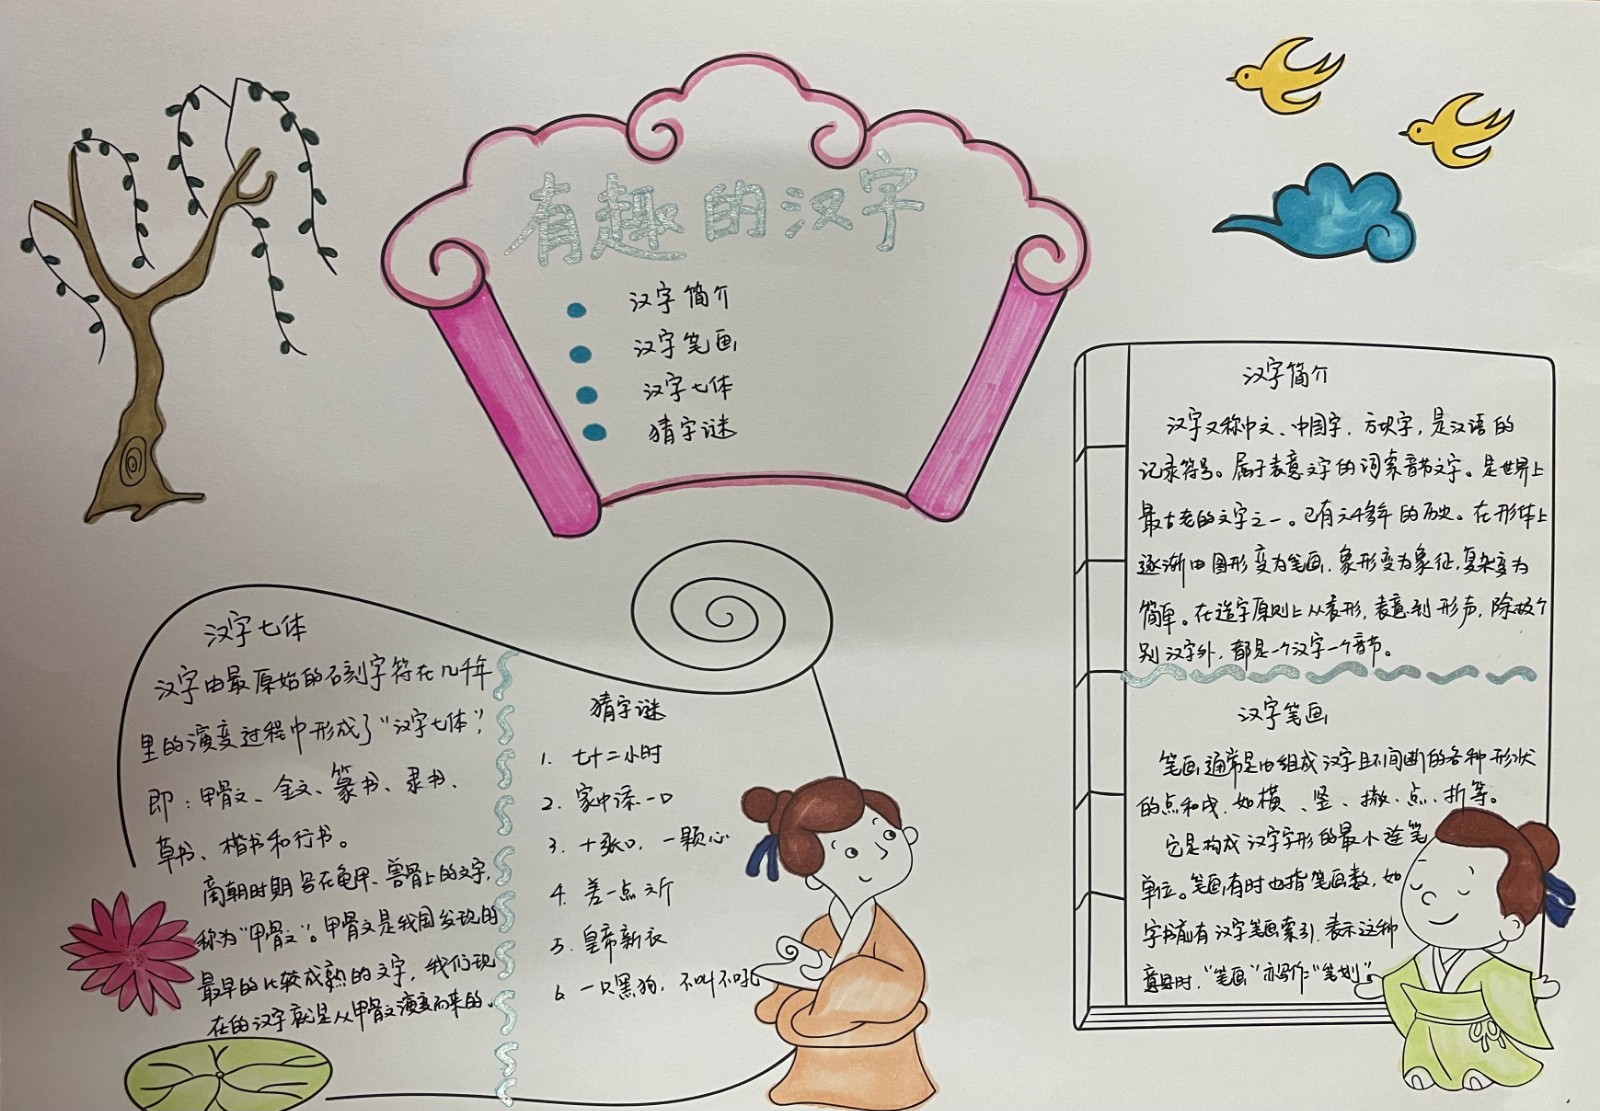 有趣的汉字
汉字简介
汉字笔画
汉字七体
猜字谜
汉字简介
汉字又称中文、中国字、方块字,是汉语的
记录符号。属于表意文字的词素音节文字。是世界上
最古老的文字之一。已有六千多年的历史。在形体上
逐渐由图形变为笔画,象形变为象征,复杂变为
简单。在造字原则上从表形,表意到形声,除极个
别汉字外,都是一个汉字一个音节。
汉字笔画
笔画通常是由组成汉字且不间断的各种形状
的点和线,如横、竖、撇、点、折等。
它是构成汉字字形的最小连笔
单位。笔画有时也指笔画数,如
字书前有汉字笔画索引,表示这种
意思时,"笔画"亦写作"笔划"。
汉字七体
汉字由最原始的石刻字符在几千年
里的演变过程中形成了"汉字七体",
即:甲骨文、金文、篆书、隶书、
草书、楷书和行书。
商朝时期写在龟甲、兽骨上的文字,
称为"甲骨文"。甲骨文是我国发现的
最早的比较成熟的文字,我们现
在的汉字就是从甲骨文演变而来的。
猜字谜
1. 七十二小时
2. 家中添一口
3. 十张口,一颗心
4. 差一点六斤
5. 皇帝新衣
6. 一只黑狗,不叫不吼